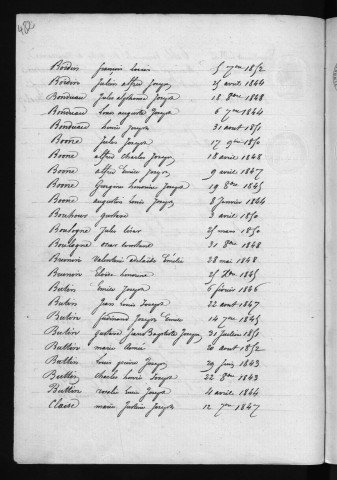 Bordin Louis 5 7bre 1852
Bordin Julien alfred Joseph 25 avril 1844
Bonduau Jules alphonse Joseph 18 8bre 1848
Bonduard Louis auguste Joseph 6 7bre 1844
Bonduard Louis Joseph 31 aout 1851
Boone Jules Joseph 17 9bre 1850
Boone alfred Charles Joseph 18 avril 1848
Boone alfred Emile Joseph 9 avril 1847
Boone Georgine honorine Joseph 19 8bre 1845
Boone augustin Louis Joseph 8 Janvier 1844
Bouhour gustave 3 avril 1850
Boulogne Jules César 25 mars 1850
Boulogne oscar constant 31 8bre 1848
Valentine adelaide Emélie 28 mai 1848
Elodie honorine 25 Xbre 1845
Buton Emile Joseph 6 fevrier 1846
Buton Jean Louis Joseph 22 aout 1847
Buton ferdinand Joseph Emile 14 7bre 1845
Butin gustave Jean Baptiste Joseph 31 Juillet 1851
Buttin marie 20 aout 1852
Buttin Louis Joseph 29 Juin 1843
Buttin Charles Louis Joseph 22 8bre 1843
Buttin rosalie Joseph 4 avril 1844
Claise marie Justine Joseph 12 7bre 1847